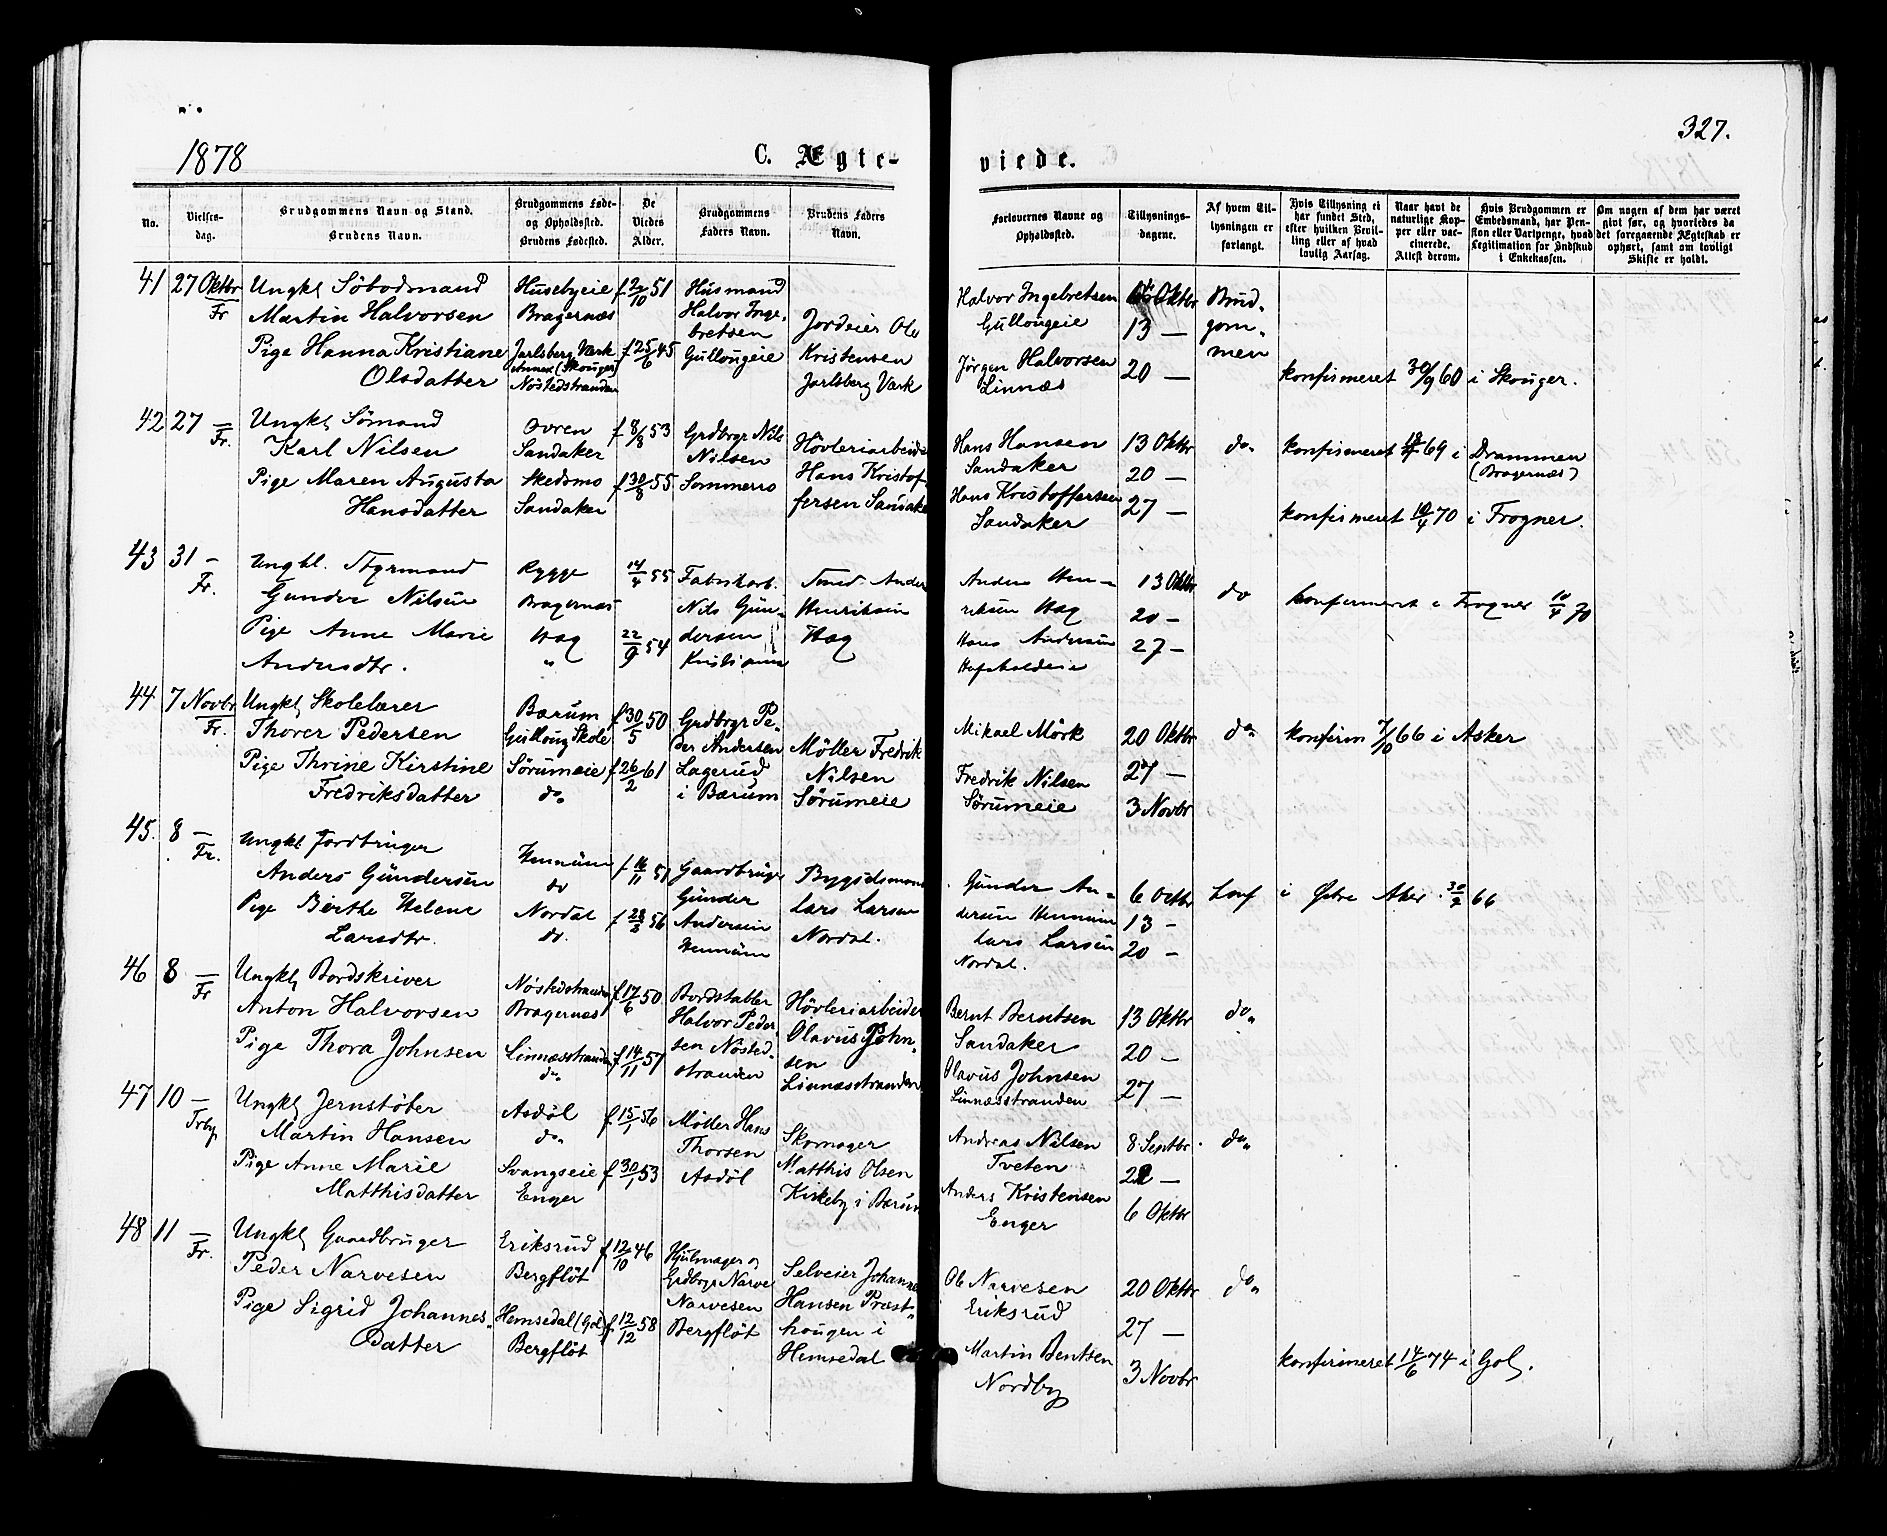 327.
1878
C. Ægte-
viede.
No.
Vielses-
dag.
Brudgommens Navn og Stand.
Brudens Navn.
Brudgommens Føde-
og Opholdssted.
Brudens Fødested.
De
Viedes
Alder.
Brudgommens
Faders Navn.
Brudens Faders
Navn.
Forlovernes Navne og
Opholdssted.
Tillysnings-
dagene.
Af hvem Til-
lysningen er
forlangt.
Hvis Tillysning ei
har fundet Sted,
efter hvilken Bevil-
ling eller af hvad
lovlig Aarsag.
Naar havt de
naturlige Kop-
per eller vac-
cinerede.
Attest derom.
Hvis Brudgommen er
Embedsmand, har Pen-
sion eller Vartpenge, hvad
Legitimation for Indskud
i Enkekassen.
Om nogen af dem har været
givt før, og hvorledes da
det foregaaende Ægteskab er
ophørt, samt om lovligt
Skifte er holdt.
41
27 Oktbr
Fr
Ungkl Søbodmand
Martin Halvorsen
Pige Hanna Kristiane
Olsdatter
Husebyeie
Bragernæs
Jarlsberg Værk
Annex (Skouger)
Nøstedstranden
f 2/10 51
f 25/6 45
Husmand
Halvor Inge-
bretsen
Gullougeie
Jordeier Ole
Kristensen
Jarlsberg Værk
Halvor Ingebretsen
Gullougeie
Jørgen Halvorsen
Linnæs
6 Oktbr
13 —
20 —
Brud-
gom-
men
konfirmeret 30/9 60 i Skouger.
42
27 —
Fr.
Ungkl Sømand
Karl Nilsen
Pige Maren Augusta
Hansdatter
Ovren
Sandaker
Skedsmo
Sandaker
f 8/8 53
f 30/8 55
Grdbrgr Nils
Nilsen
Sommerro
Høvleriarbeider
Hans Kristof-
fersen Sandaker
Hans Hansen
Sandaker
Hans Kristoffersen
Sandaker
13 Oktbr
20 —
27 —
do
konfirmeret 69 i Drammen
(Bragernæs)
konfirmeret 10/4 70 i Frogner.
43
31 —
Fr.
Ungkl. Styrmand
Gunder Nilsen
Pige Anne Marie
Andersdtr.
Rygge
Bragernæs
Hag
"
14/4 55
22/9 54
Fabrikarb.
Nils Gun-
dersen
Kristiania
Smed Anders
Henriksen
Hag
Anders Hen-
riksen Hag
Hans Andersen
13 Oktbr
20 —
27 —
do
konfirmeret i Frogner 10/4 70
44
7 Novbr
Fr.
Ungkl Skolelærer
Thorer Pedersen
Pige Thrine Kirstine
Fredriksdatter
Bærum
Gulloug Skole
Sørumeie
do
f 30/5 50
f 26/2 61
Grdbrgr Pe-
der Andersen
Lagerud
i Bærum
Møller Fredrik
Nilsen
Sørumeie
Mikael Mörk
Fredrik Nilsen
Sørumeie
20 Oktbr
27 —
3 Novbr
do
konfirm 7/10 66 i Asker
45.
8 —
Fr.
Ungkl Jordbruger
Anders Gundersen
Pige Birthe Helene
Larsdtr.
Hennum
do
Nordal
do.
f 16/11 51
f 56
Gaardbruger
Gunder
Andersen
Hennum
Bygselmand
Lars Larsen
Nordal.
Gunder An-
dersen Hennum
Lars Larsen
Nordal.
6 Octbr
13 —
20 —
Konf i Østre Aker 66
46
8 —
Fr
Ungkl Bordskriver
Anton Halvorsen
Pige Thora Johnsen
Nøstedstranden
Bragernæs
Linnæsstranden
do
f 17/6 50
f 14/11 57
Bordstabler
Halvor Peder-
sen Nøsted-
stranden
Høvleriarbeider
Olavus John-
sen
Linnæsstranden
Bernt Berntsen
Sandaker
Olavus Johnsen
Linnæsstranden
13 Oktbr
20 —
27 —
do
47
10 —
Trby
Ungkl Jernstøber
Martin Hansen
Pige Anne Marie
Matthisdatter
Asdøl
do
Svangseie
Enger
f 15/1 56
f 30/1 53
Møller Hans
Thorsen
Asdøl
Skomager
Matthis Olsen
Kirkeby i Bærum
Andreas Nilsen
Tveten
Anders Kristensen
Enger
8 Septbr
22 —
6 Oktbr
do
48
11 —
Fr.
Ungkl Gaardbruger
Peder Narvesen
Pige Sigrid Johannes-
datter
Eriksrud
Bergfløt
Hemsedal (Gol)
Bergfløt
f 12/10 46
f 12/12 58
Hjulmager og
Grdbrgr Narve
Narvesen
Bergfløt
Selveier Johannes
Hansen Præst-
hougen i
Hemsedal
Ole Narvesen
Eriksrud
Martin Bentsen
Nordby
20 Oktbr
27 —
3 Novbr
do
konfirmeret 14/6 74 i Gol.